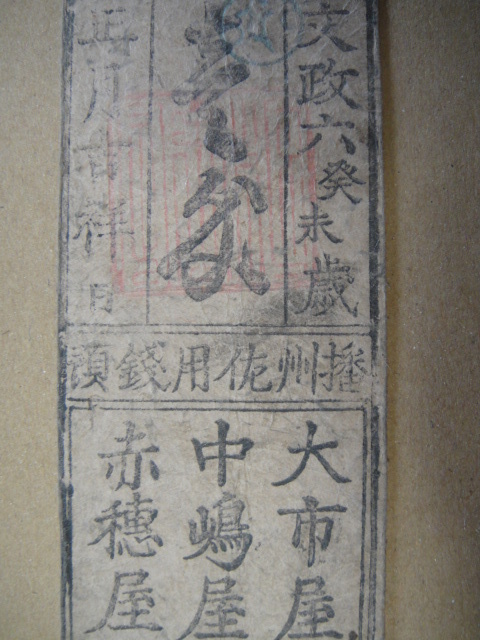 文政六癸未歳
月吉祥日
播州佐用銭預
大市屋
中嶋屋
赤穂屋